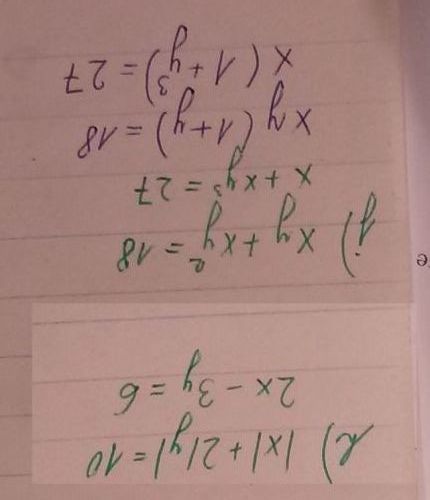 k) |x|+2|y|=10
2x - 3y = 6
j) xy + xy² = 18
x + xy³ = 27
xy (1+y) = 18
x (1+y³) = 27